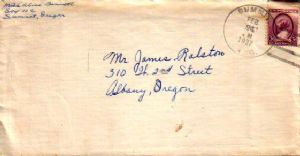 Miss Alice Burnett
Box 112
Summit, Oregon
SUMMIT
FEB
1937
Mr James Ralston
310 Th. 2nd Street
Albany, Oregon